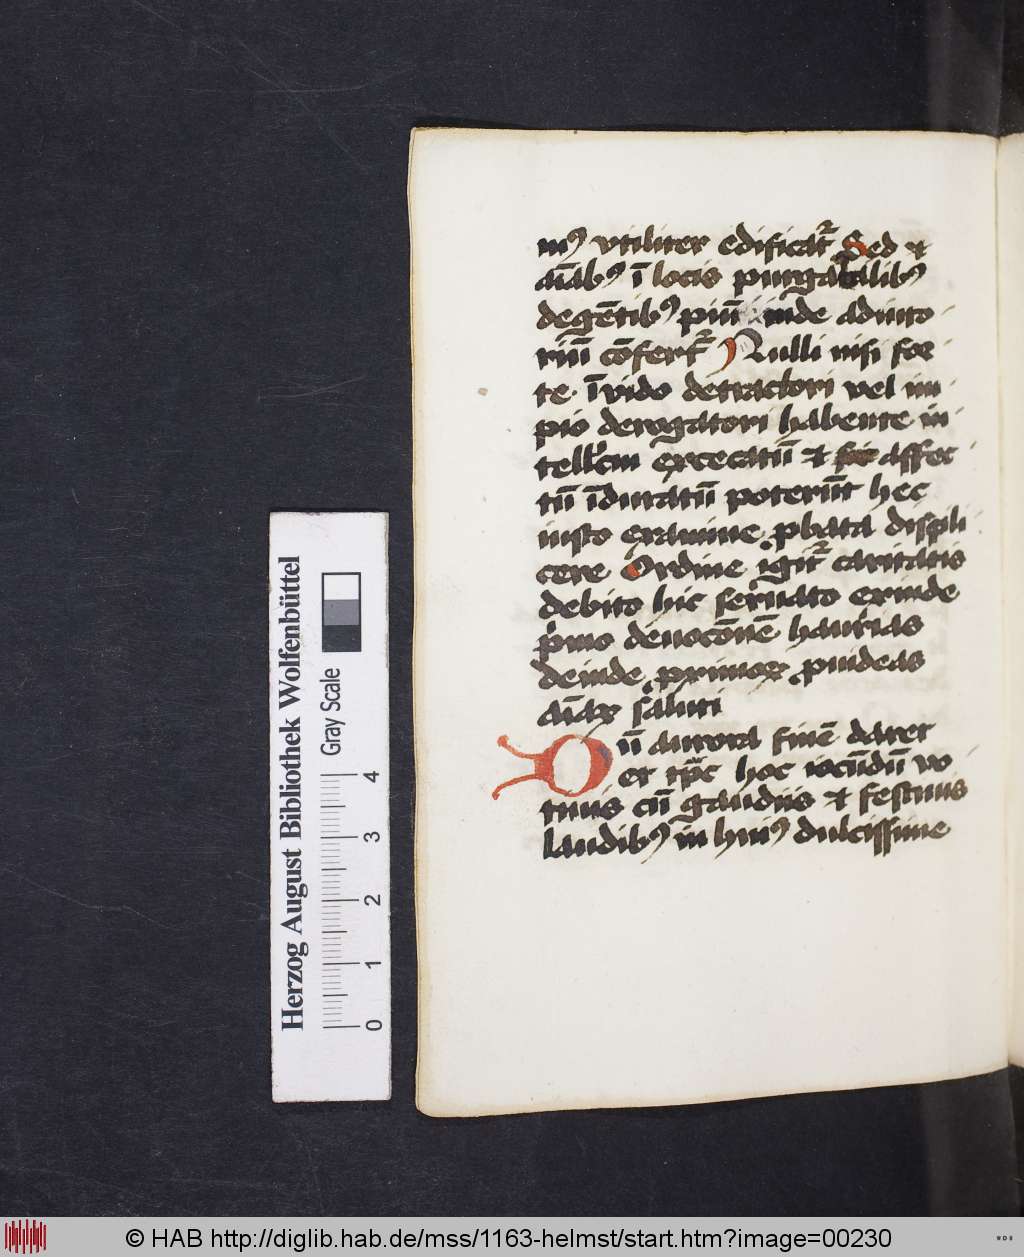 mꝰ vtiliter edificat᷑ Sed et
aīabꝰ ī locis purgabilibꝰ
degētibꝰ piū inde adiuto
riū cōfert᷑ Nulli nisi for
te īvido detractori vel im
pio derogatori habente in
excecatū et affec
tū īduratū poterūt hec
iusto examine ꝓbata displi
cere Ordine igit᷑ caritatis
debito hic seruato exinde
pͥmo deuocōnē haurias
deinde primoꝝ ꝓuideas
aīaꝝ saluti
Cū aurora finē daret
et hoc iocūdū vo
tiuis cū gaudiis et festiuis
laudibꝰ in huiꝰ dulcissime
Herzog August Bibliothek Wolfenbüttel
Gray Scale
0 1 2 3 4
© HAB http://diglib.hab.de/mss/1163-helmst/start.htm?image=00230
WDB